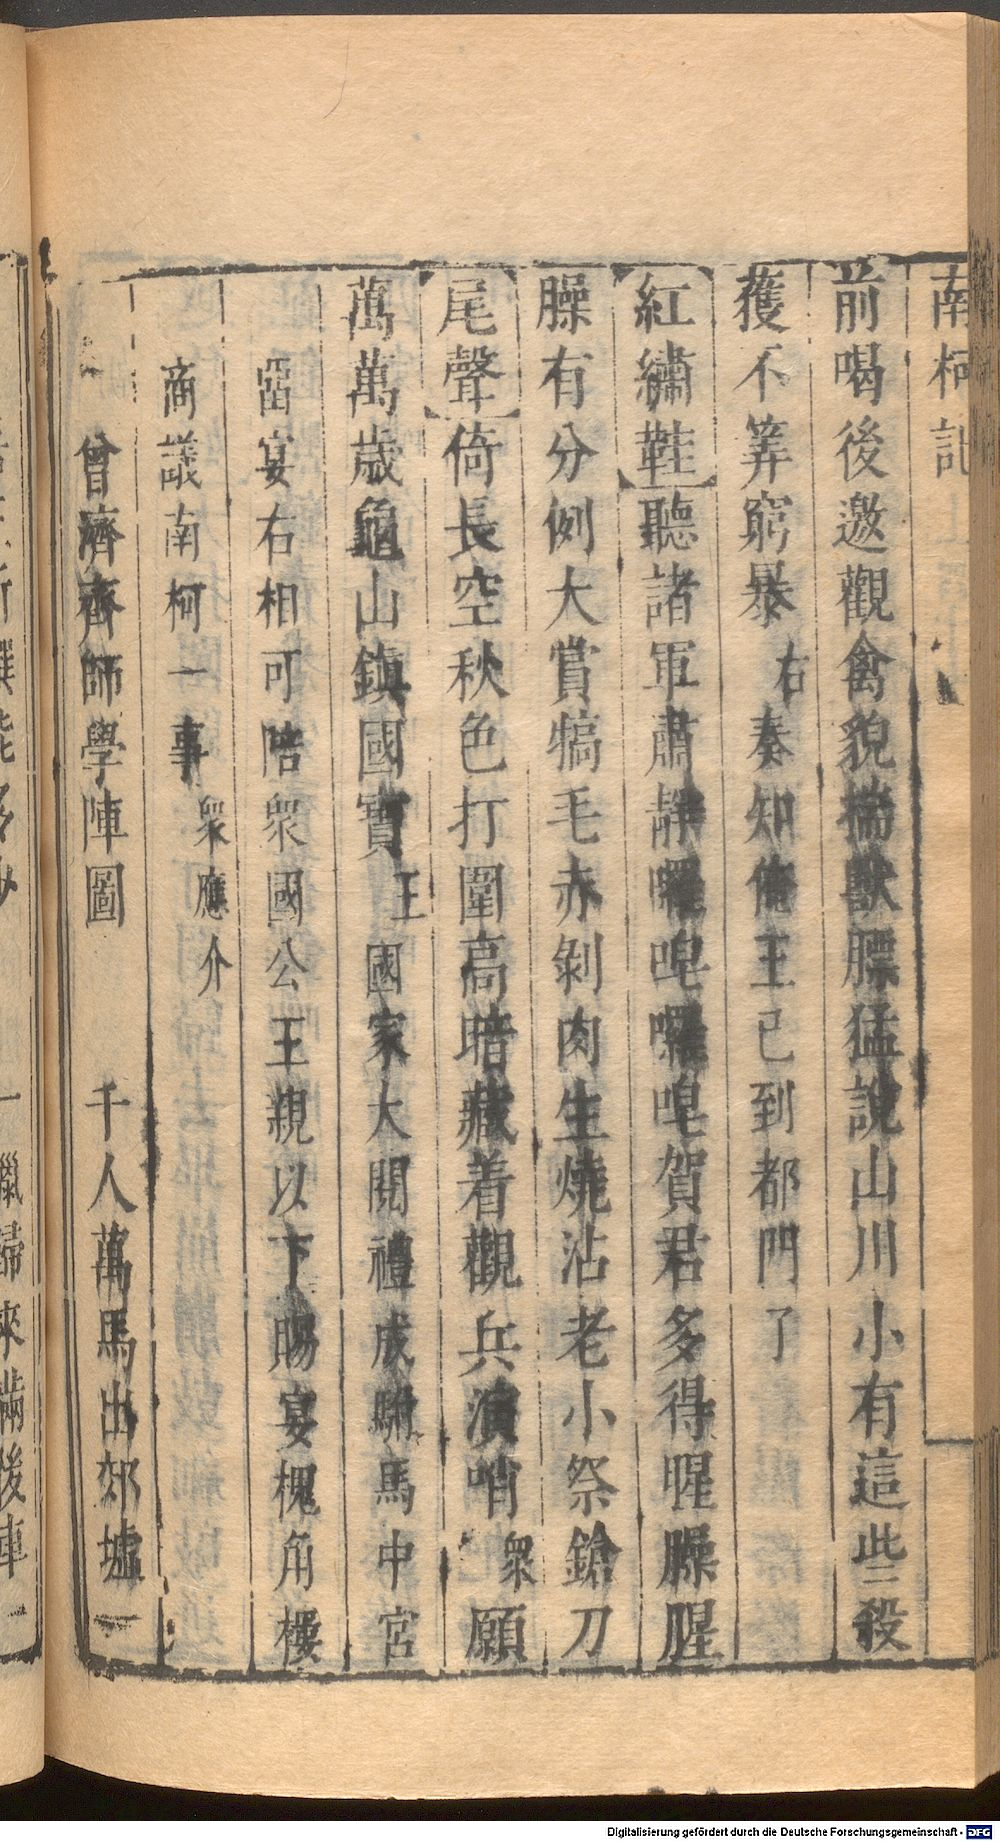 南柯記
前喝後邀觀禽貌揣獸膘猛說山川小有這此三殺
獲不筭窮暴右奏知俺王已到都門了
紅繡鞋聽諸軍肅靜囉唣囉唣賀君多得腥臊腥
臊有分例大賞犒毛赤剝肉生燒沾老小祭鎗刀
尾聲倚長空秋色打圍高暗藏着觀兵演哨衆願
萬萬歲龜山鎮國寶王國家大閱禮成駙馬中宮
畱宴右相可陪衆國公王親以下賜宴槐角樓
商議南柯一事衆應介
曾濟齊師學陣圖 千人萬馬出郊墟
獵歸來滿後車
Digitalisierung gefördert durch die Deutsche Forschungsgemeinschaft - DFG